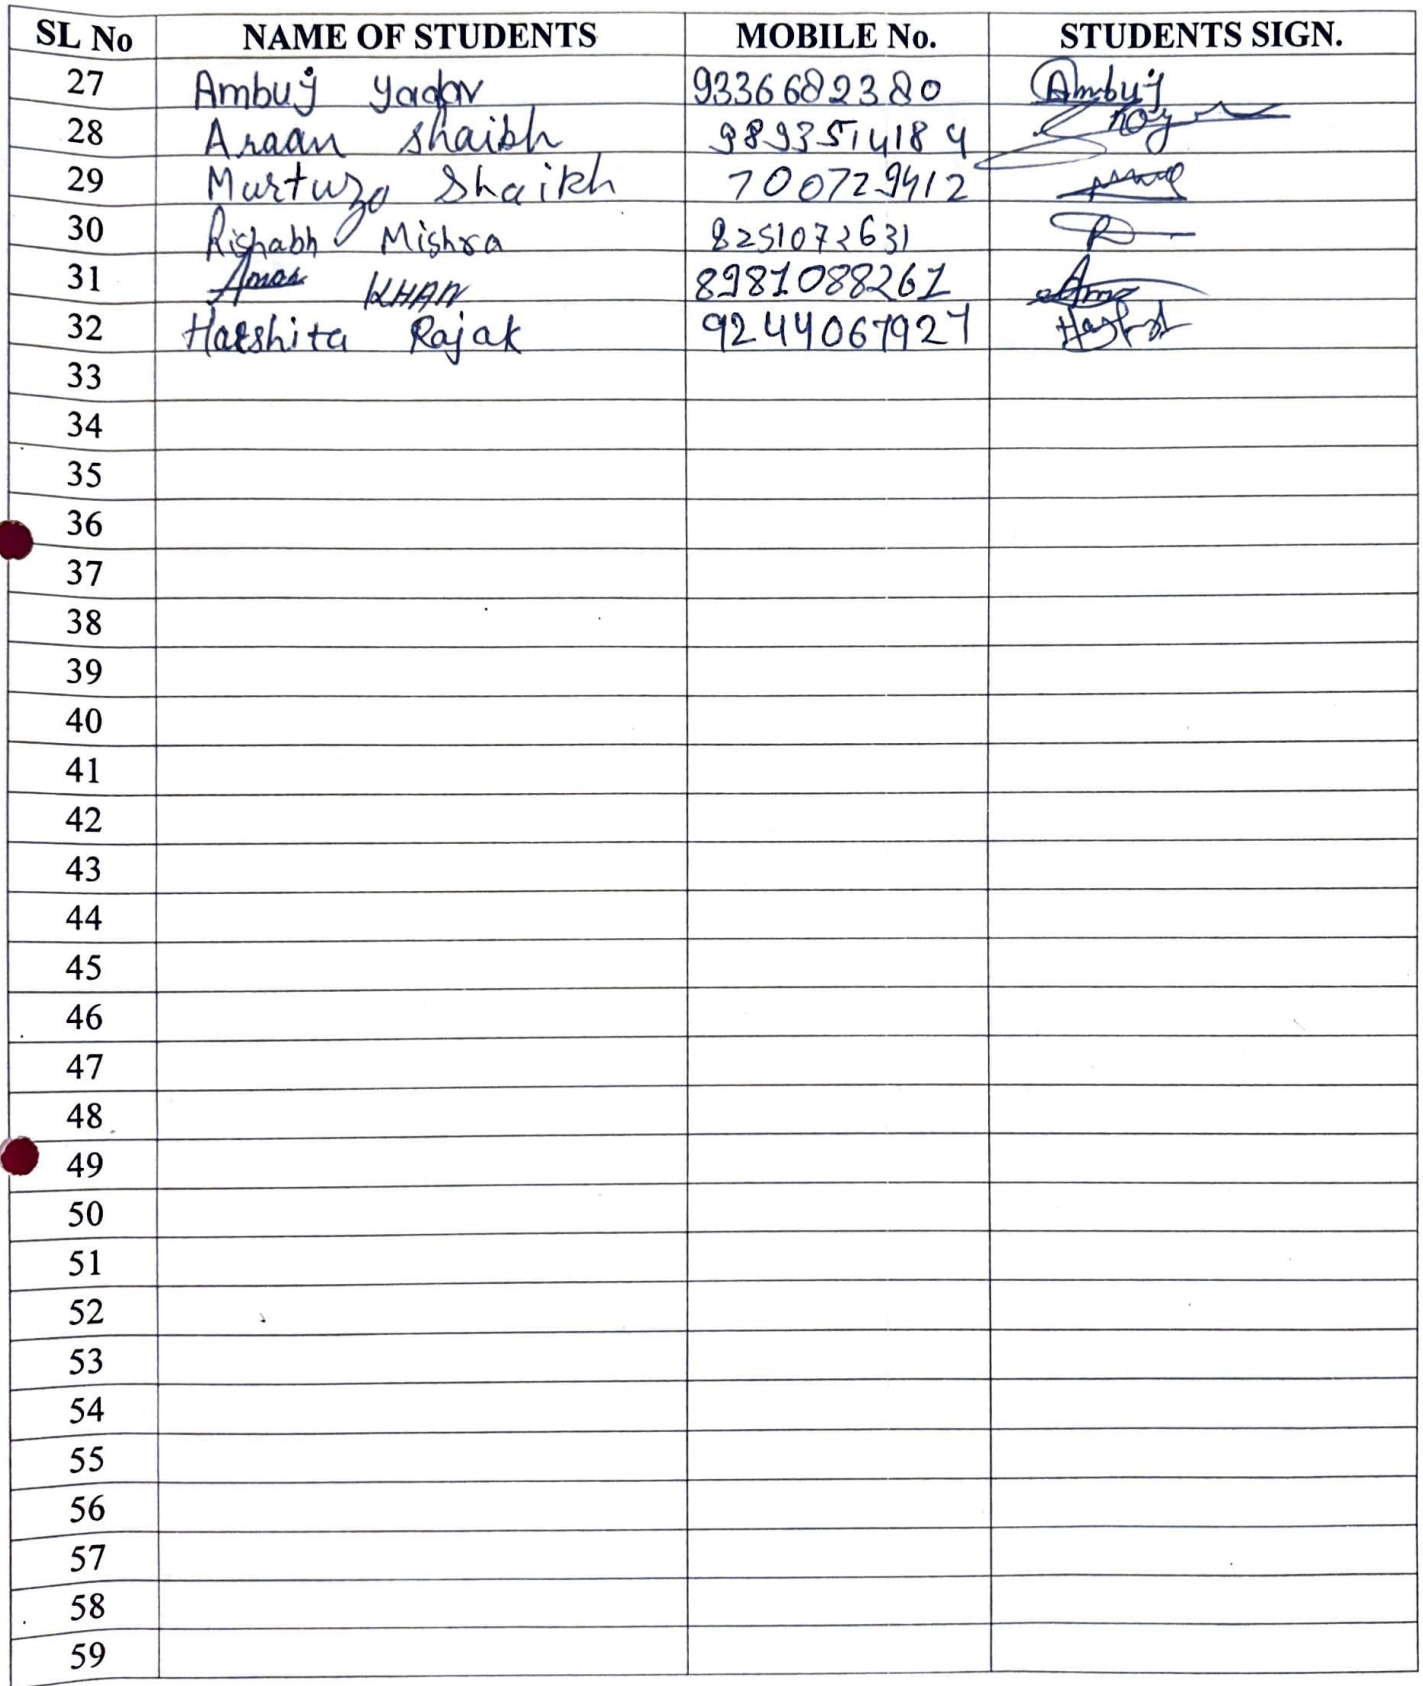 SL No NAME OF STUDENTS MOBILE No. STUDENTS SIGN.
27 Ambuj Yadav 9336682380 Ambuj
28 Araan Shaikh 9893514184
29 Murtuza Shaikh 700729412
30 Rishabh Mishra 8251072631
31 Anas KHAN 8981088261
32 Harshita Rajak 9244067927
33
34
35
36
37
38
39
40
41
42
43
44
45
46
47
48
49
50
51
52
53
54
55
56
57
58
59